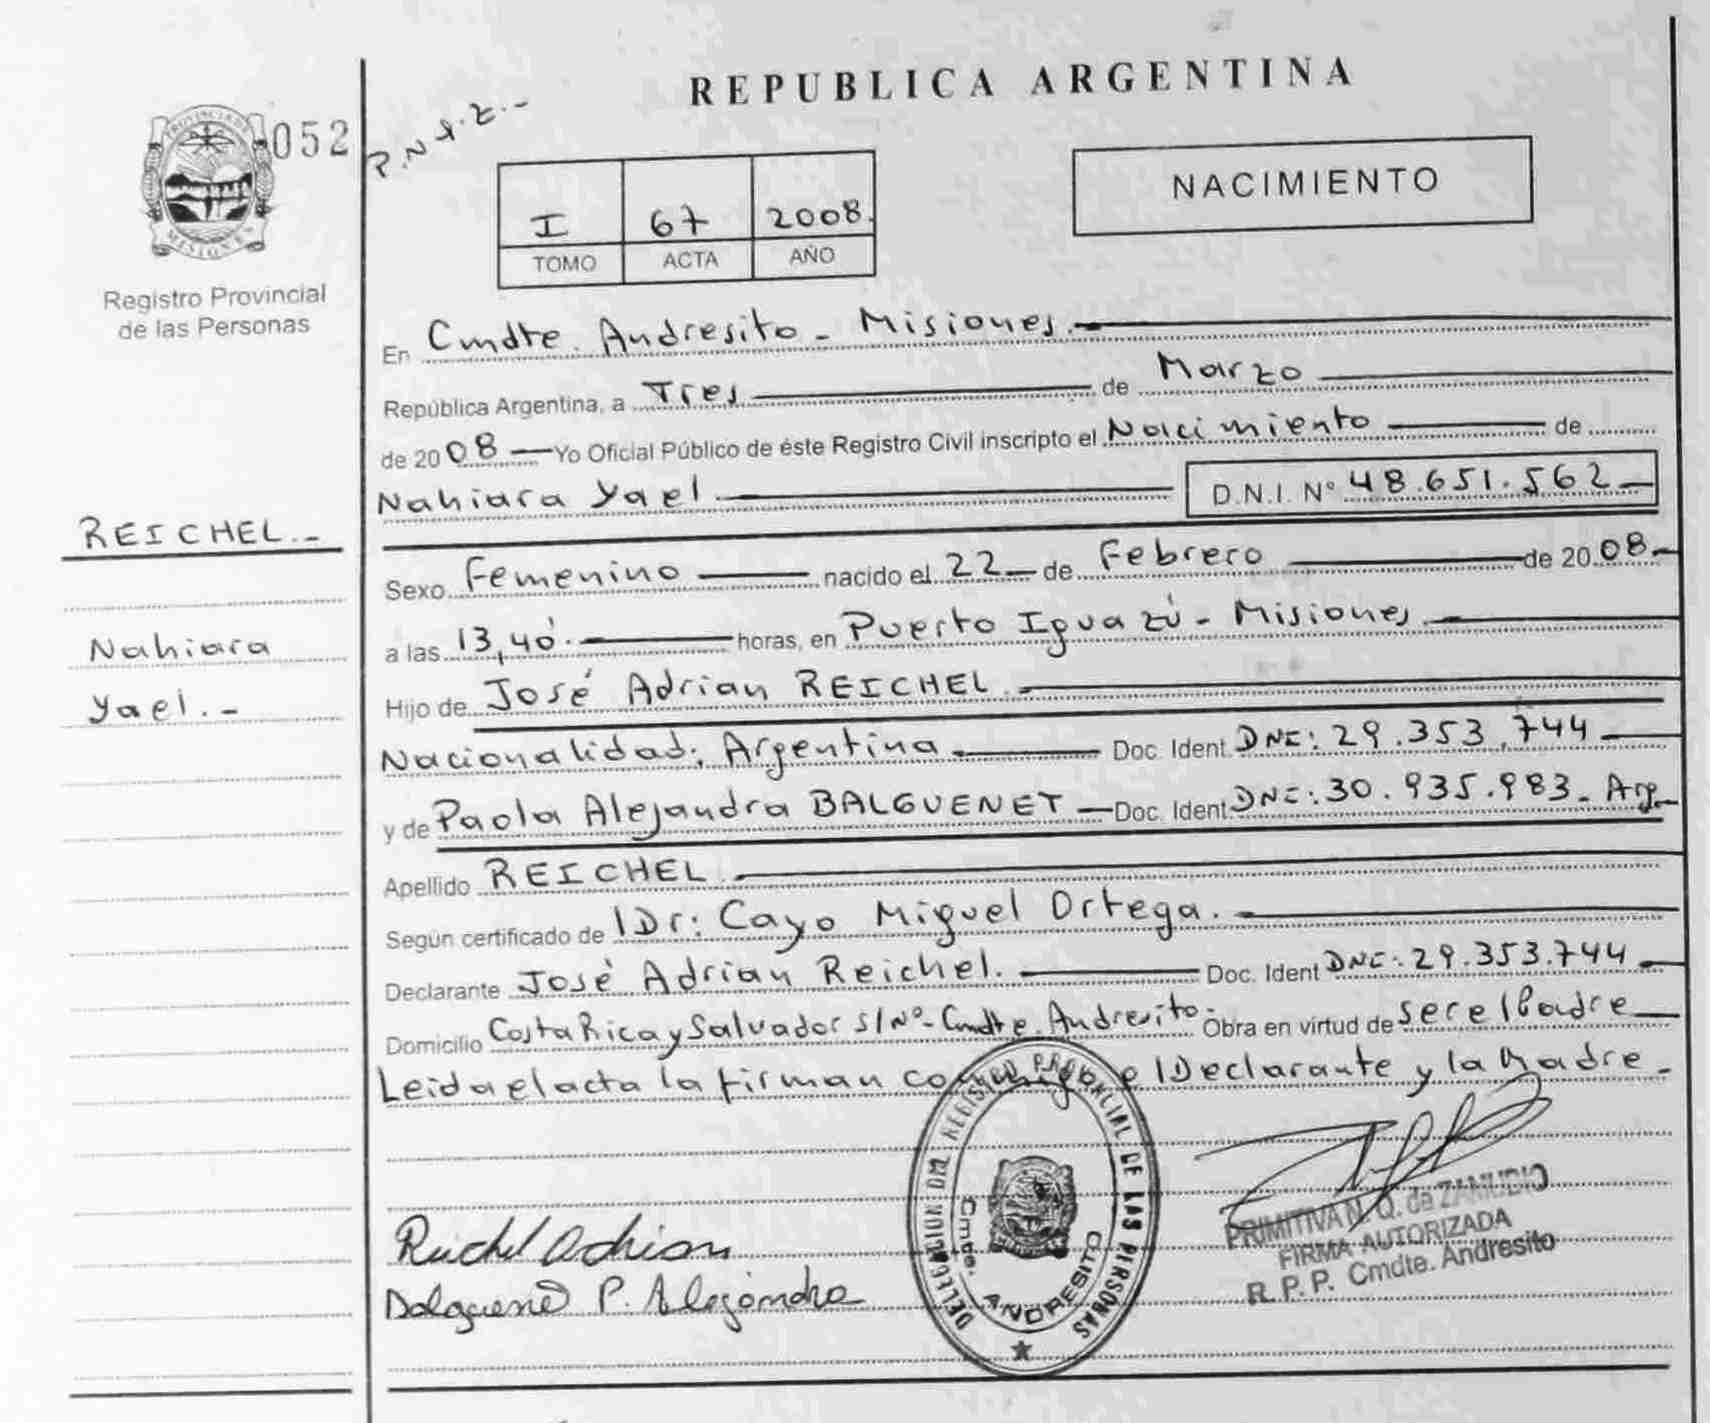 REPUBLICA ARGENTINA
PROVINCIA DE
MISIONES
052
P.N.1.2.-
NACIMIENTO
I 67 2008.
TOMO ACTA AÑO
Registro Provincial
de las Personas
En Cmdte. Andresito - Misiones.
República Argentina, a Tres de Marzo
de 2008 Yo Oficial Público de éste Registro Civil inscripto el Nacimiento de
Nahiara Yael D.N.I. Nº 48.651.562
REICHEL.-
Sexo Femenino nacido el 22 de Febrero de 2008.
Nahiara
a las 13,40. horas, en Puerto Iguazú - Misiones
Yael.-
Hijo de José Adrian REICHEL.
Nacionalidad: Argentina Doc. Ident. DNI: 29.353.744
y de Paola Alejandra BALGUENET Doc. Ident. DNI: 30.935.983. Arg.
Apellido REICHEL
Según certificado de lDr: Cayo Miguel Ortega.
Declarante José Adrian Reichel. Doc. Ident DNI: 29.353.744
Domicilio Costa Rica y Salvador S/Nº - Cmdte. Andresito. Obra en virtud de ser el Padre
Leida el acta la firman conmigo el Declarante y la Madre.
DELEGACION DEL REGISTRO PROVINCIAL DE LAS PERSONAS
Cmte. ANDRESITO
Reichel Adrian
P. Alejandra
PRIMITIVA N. Q. de ZAMUDIO
FIRMA AUTORIZADA
R. P. P. Cmdte. Andresito